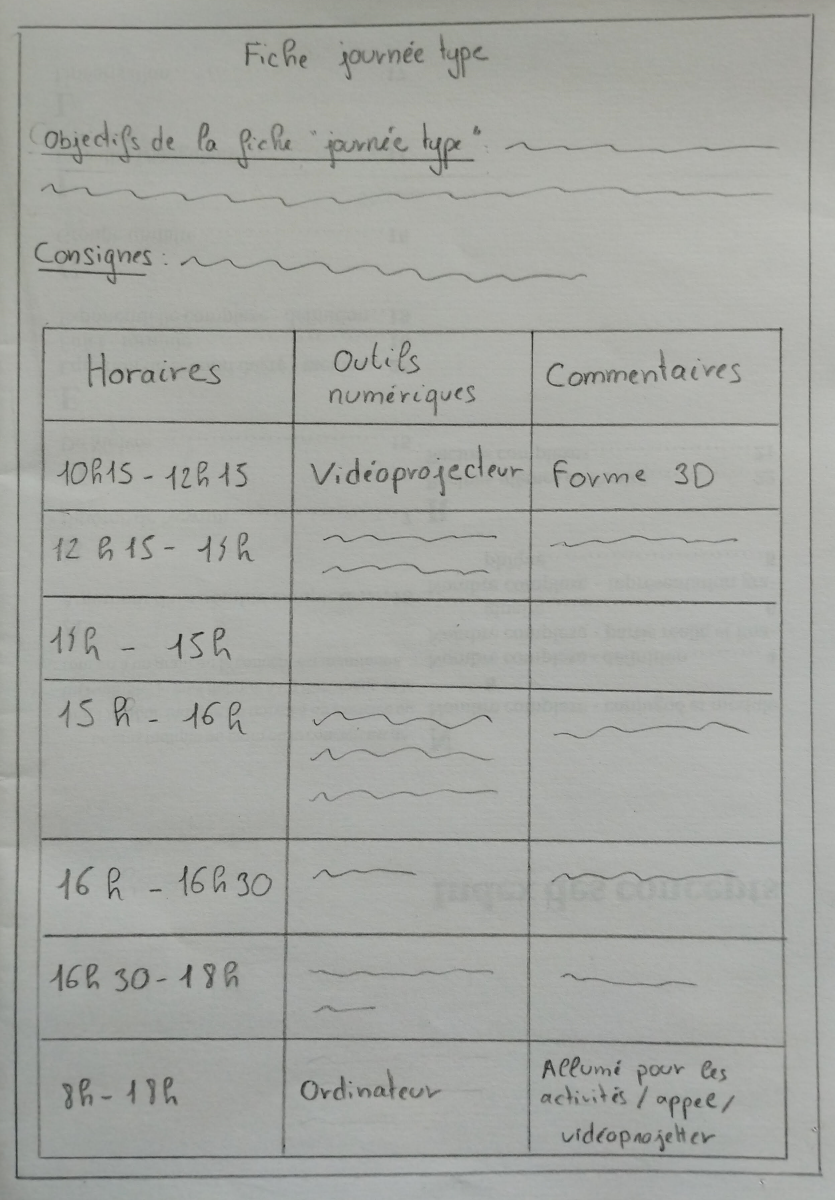 Fiche journée type
Objectifs de la fiche "journée type" :
Consignes :
Horaires
Outils
numériques
Commentaires
10h15 - 12h15
Vidéoprojecteur
Forme 3D
12h15 - 14h
14h - 15h
15h - 16h
16h - 16h30
16h30 - 18h
8h - 18h
Ordinateur
Allumé pour les
activités / appel /
vidéoprojetter